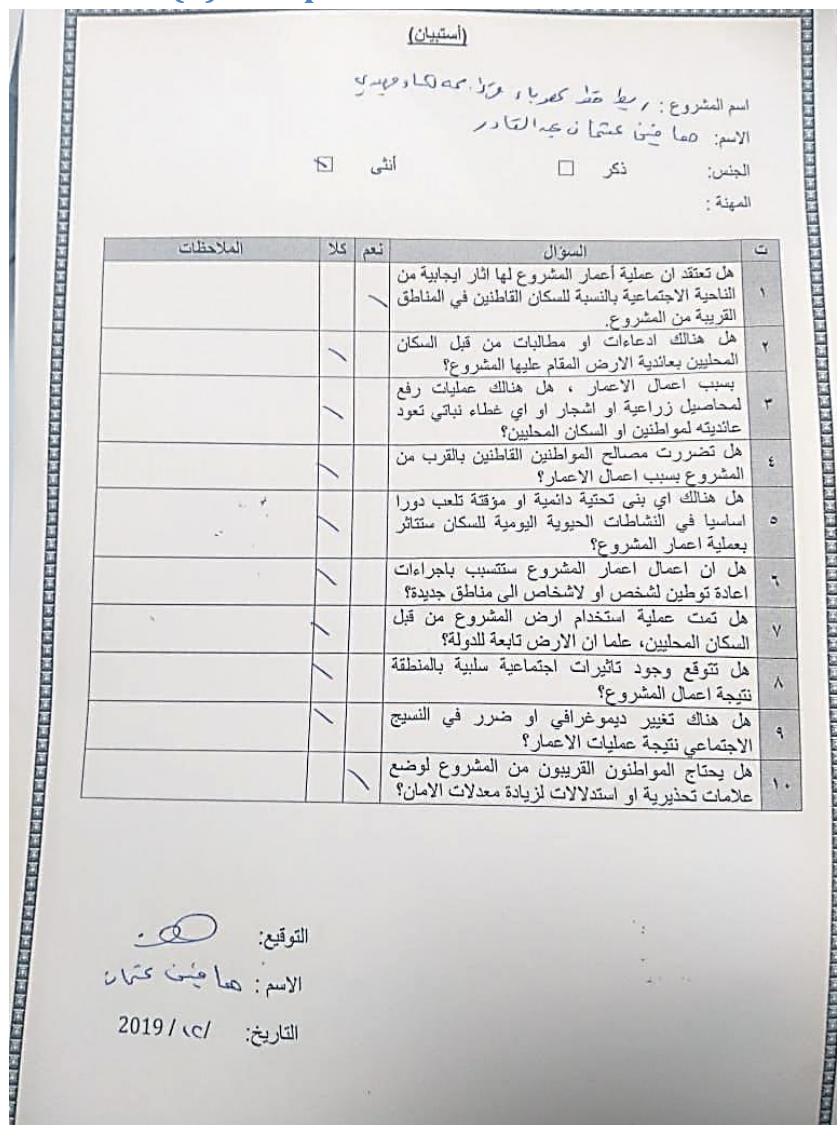 (أستبيان)
اسم المشروع : ربط خط كهرباء
الاسم: هما عثمان عبدالقادر
الجنس: ذكر ☐ أنثى ☑
المهنة :
ت السؤال نعم كلا الملاحظات
١ هل تعتقد ان عملية أعمار المشروع لها اثار ايجابية من
الناحية الاجتماعية بالنسبة للسكان القاطنين في المناطق
القريبة من المشروع.
٢ هل هنالك ادعاءات او مطالبات من قبل السكان
المحليين بعائدية الارض المقام عليها المشروع؟
٣ بسبب اعمال الاعمار ، هل هنالك عمليات رفع
لمحاصيل زراعية او اشجار او اي غطاء نباتي تعود
عائديته لمواطنين او السكان المحليين؟
٤ هل تضررت مصالح المواطنين القاطنين بالقرب من
المشروع بسبب اعمال الاعمار؟
٥ هل هنالك اي بنى تحتية دائمية او مؤقتة تلعب دورا
اساسيا في النشاطات الحيوية اليومية للسكان ستتاثر
بعملية اعمار المشروع؟
٦ هل ان اعمال اعمار المشروع ستتسبب باجراءات
اعادة توطين لشخص او لاشخاص الى مناطق جديدة؟
٧ هل تمت عملية استخدام ارض المشروع من قبل
السكان المحليين، علما ان الارض تابعة للدولة؟
٨ هل تتوقع وجود تاثيرات اجتماعية سلبية بالمنطقة
نتيجة اعمال المشروع؟
٩ هل هناك تغيير ديموغرافي او ضرر في النسيج
الاجتماعي نتيجة عمليات الاعمار؟
١٠ هل يحتاج المواطنون القريبون من المشروع لوضع
علامات تحذيرية او استدلالات لزيادة معدلات الامان؟
التوقيع:
الاسم : هما عثمان
التاريخ: / ١٢ / 2019